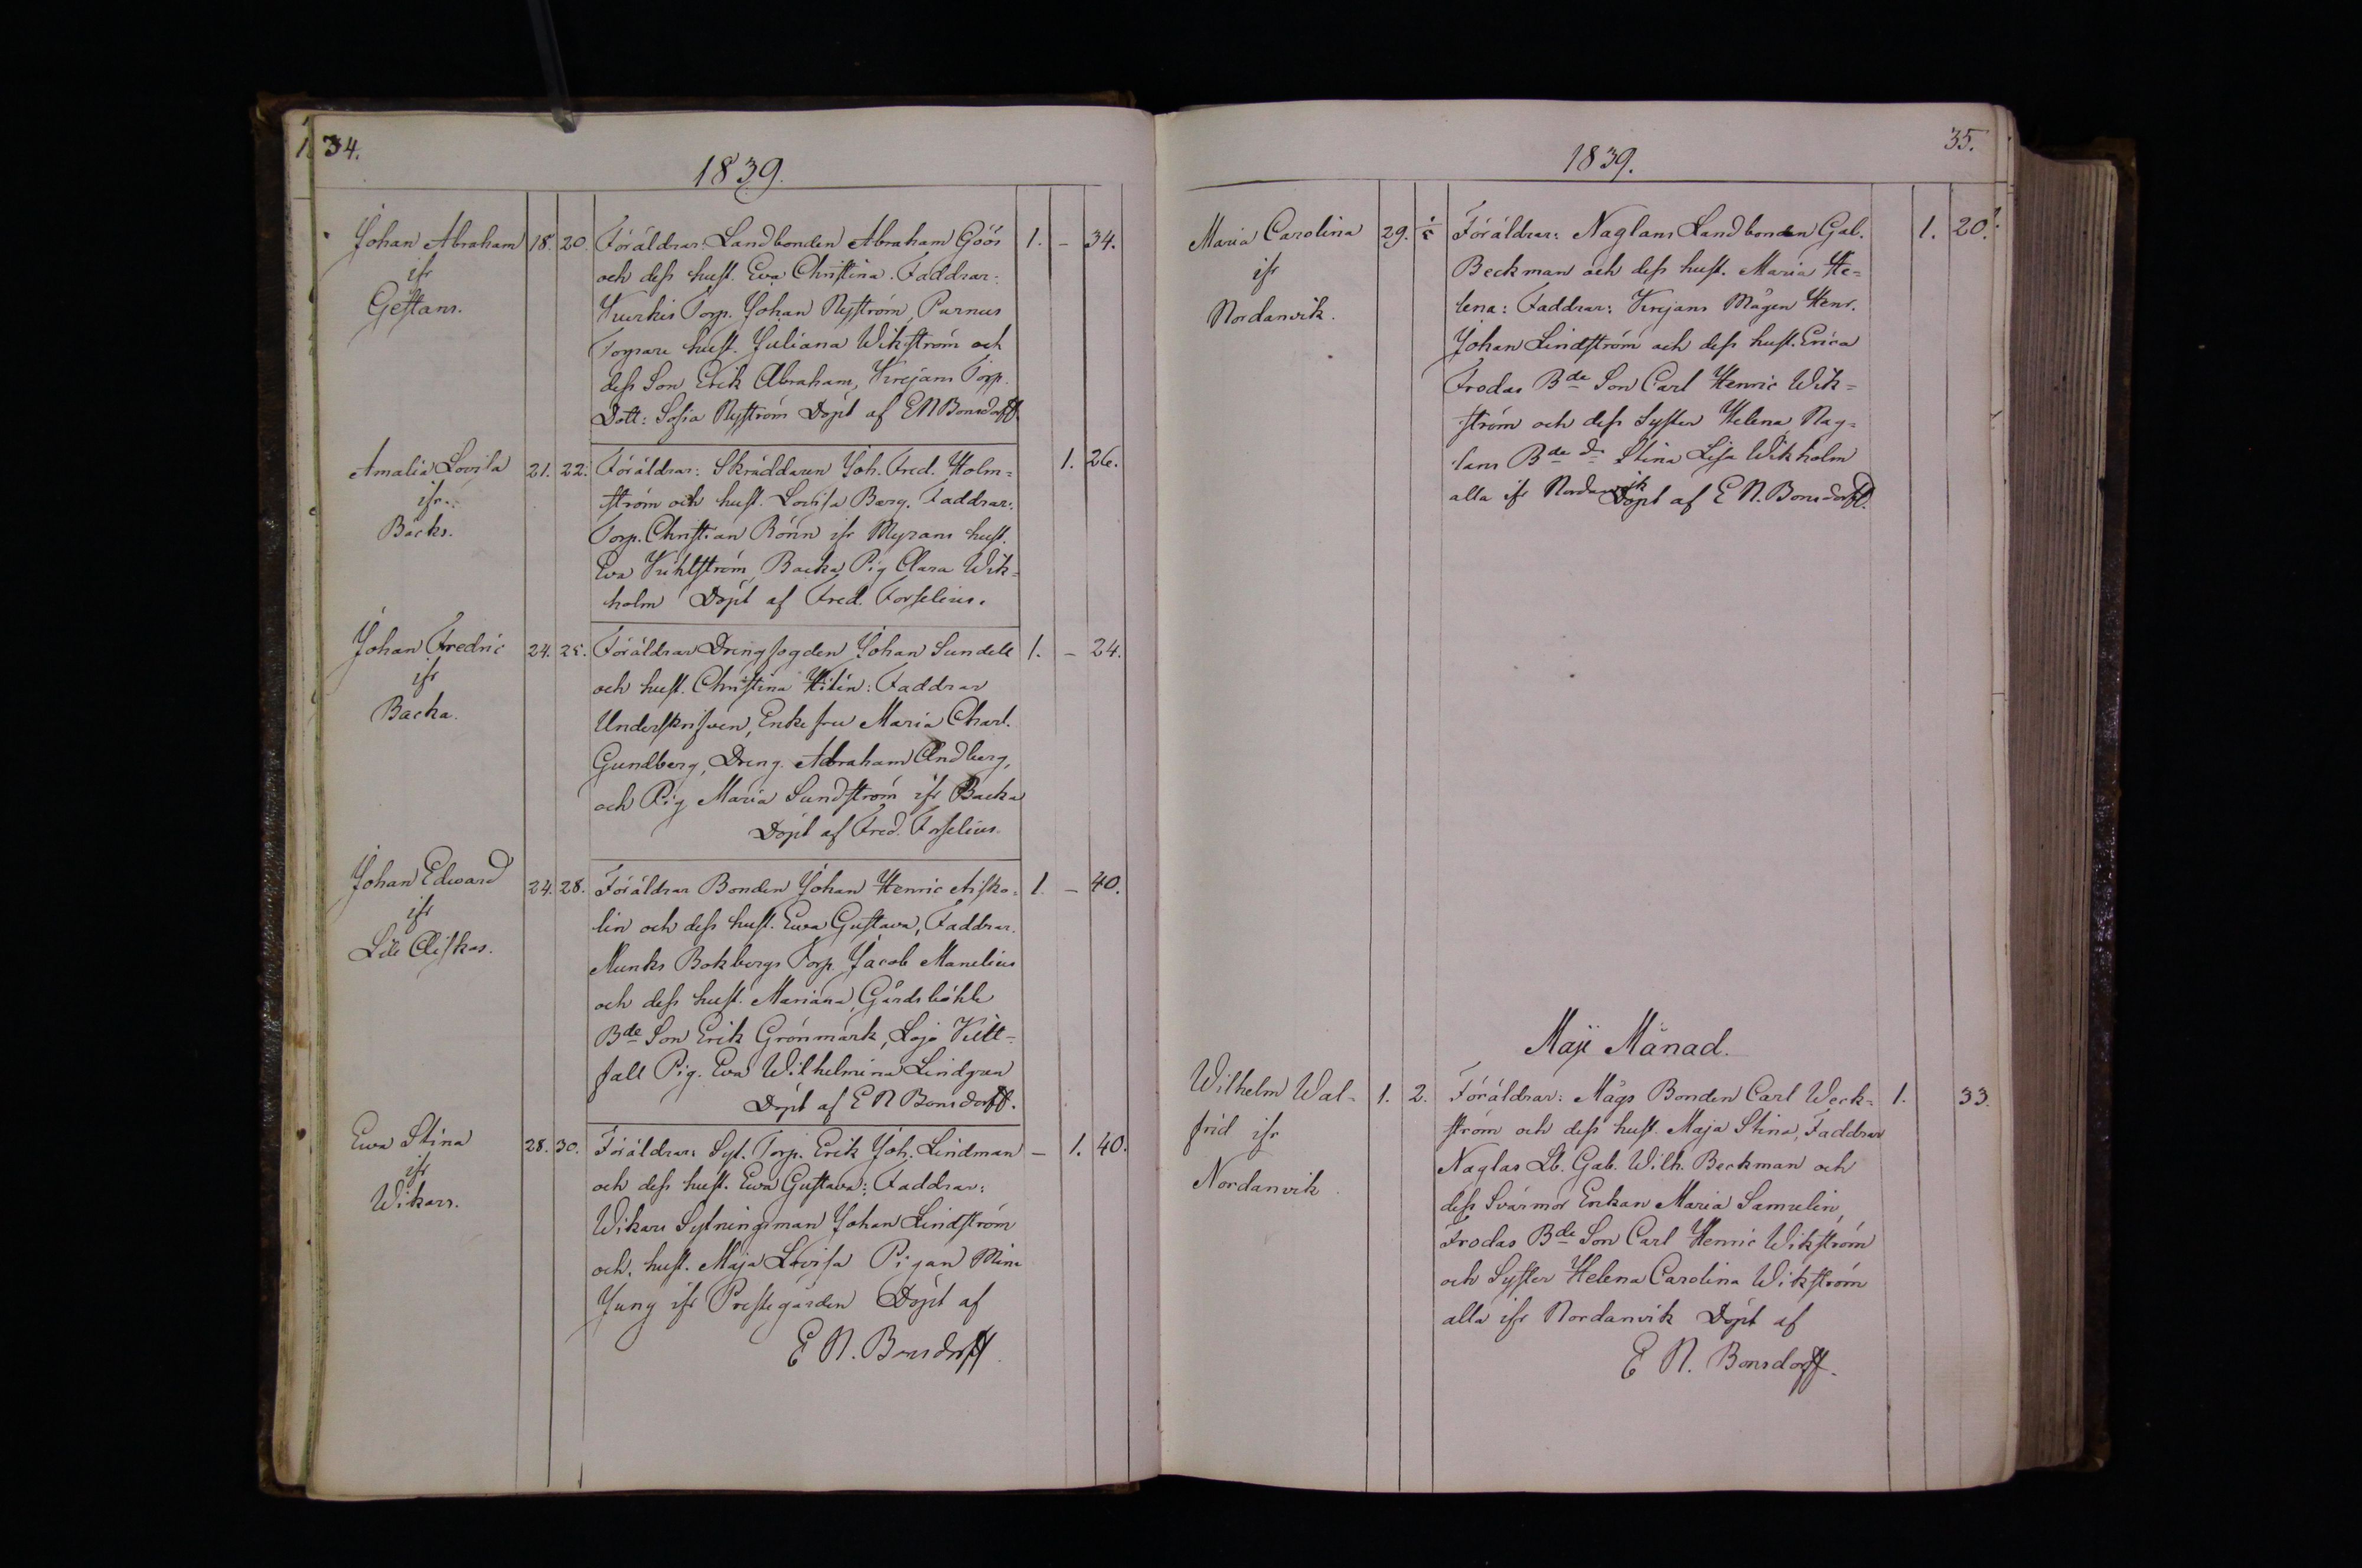 34.
1839.
Johan Abraham 18. 20. Föräldrar: Landbonden Abraham Göös 1. – 34.
ifr och dess hust. Eva Christina. Faddrar:
Gestans. Kurkis Torp. Johan Nyström, Purnus
Torpare hust. Juliana Wikström och
dess Son Erik Abraham, Krejans Torp.
Dott: Sofia Nyström Döpt af E N Bonsdorff
Amalia Lovisa 21. 22. Föräldrar: Skräddaren Joh. Fred. Holm= 1. 26.
ifr. ström och hust. Lovisa Berg. Faddrar:
Backs. Torp. Christian Rönn ifr Myrans hust.
Eva Kuhlström, Backa Pig Clara Wik=
holm Döpt af Fred. Forselius.
Johan Fredric 24. 25. Föräldrar Drengfogden Johan Sundell 1. – 24.
ifr och hust. Christina Hilén: Faddrar
Backa. Underskrifven, Enkefru Maria Charl.
Gundberg, Dreng. Abraham Andberg,
och Pig Maria Sundström ifr Backa
Döpt af Fred. Forselius.
Johan Edward 24. 28. Föräldrar Bonden Johan Henric Aisko= 1. – 40.
ifr lin och dess hust. Eva Gustava, Faddrar.
Lill Aiskos. Munks Bokbergs Torp. Jacob Manelius
och dess hust. Mariana, Gårdsböhle
Bde Son Erik Grönmark, Lojo Kitt=
fall Pig. Eva Wilhelmina Lindgren
Döpt af E N Bonsdorff.
Ewa Stina 28. 30. Föräldrar: Syt. Torp. Erik Joh. Lindman – 1. 40.
ifr och dess hust. Eva Gustava: Faddrar:
Wikars. Wikars Sytningsman Johan Lindström
och hust. Maja Lovisa Pigan Mina
Jung ifr Prestegården Döpt af
E N. Bonsdorff.
35.
1839.
Maria Carolina 29. Föräldrar: Naglans Landbonden Gab. 1. 20.
ifr Beckman och dess hust. Maria He=
Nordanvik. lena: Faddrar: Krejans Mågen Henr.
Johan Lindström och dess hust. Erica
Frodas Bde Son Carl Henric Wik=
ström och dess Syster Helena, Nag=
lans Bde Dr Stina Lisa Wikholm
alla ifr Nordanvik Döpt af E N. Bonsdorff.
Maji Månad.
Wilhelm Wal= 1. 2. Föräldrar: Mågs Bonden Carl Weck= 1. 33.
frid ifr ström och dess hust. Maja Stina, Faddrar
Nordanvik. Naglas Lb. Gab. Wilh. Beckman och
dess Svärmor Enkan Maria Samuelin,
Frodas Bde Son Carl Henric Wikström
och Syster Helena Carolina Wikström
alla ifr Nordanvik Döpt af
E N. Bonsdorff.